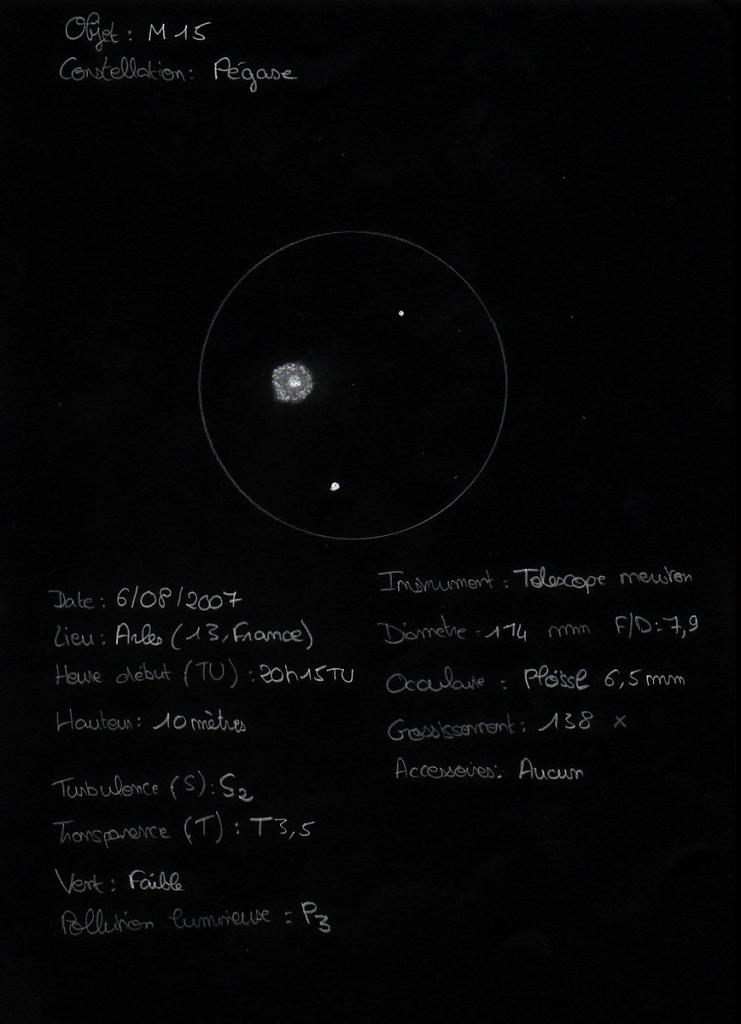 Objet : M 15
Constellation : Pégase
Date : 6/08/2007
Lieu : Arles (13, France)
Heure début (TU) : 20h15TU
Hauteur : 10 mètres
Turbulence (S) : S2
Transparence (T) : T3,5
Vent : Faible
Pollution lumineuse : P3
Instrument : Télescope newton
Diamètre : 114 mm F/D : 7,9
Occulaire : Plössl 6,5 mm
Grossissement : 138 x
Accessoires : Aucun